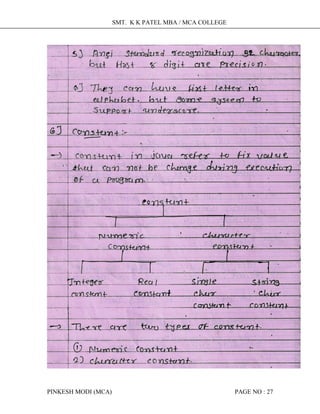 SMT. K K PATEL MBA / MCA COLLEGE
5] Ansi Standard recognization 32 character
but first 8 digit are precision.
6] They can have first letter in
alphabet. but some system to
support underscore.
6] Constant :-
→ constant in java refer to fix value
that can not be change during execution
of a program.
constant
Numeric character
constant constant
Integer Real single string
constant constant char char
constant constant
→ There are two types of constant.
① Numeric constant
2) character constant.
PINKESH MODI (MCA) PAGE NO : 27